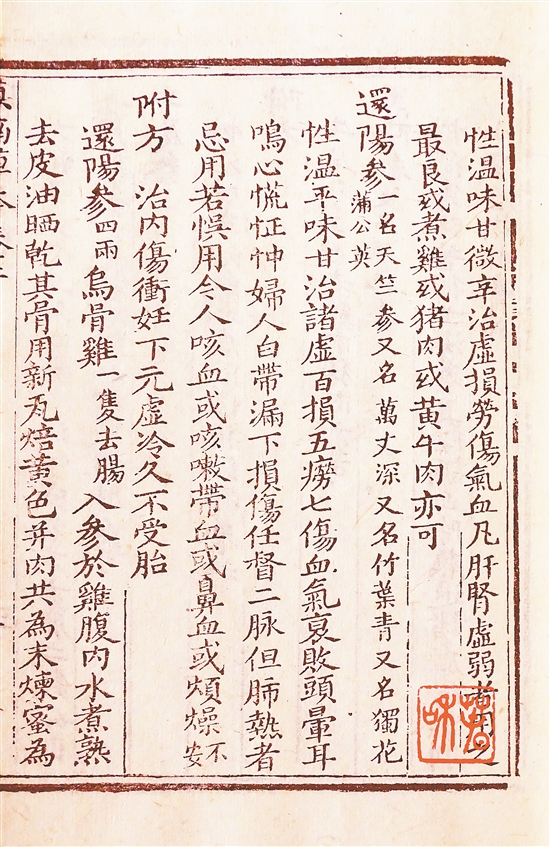 性温味甘微辛治虛損勞傷氣血凡肝腎虛弱
最良或煮雞或猪肉或黄牛肉亦可
還陽參一名天竺參又名萬丈深又名竹葉青又名獨花蒲公英
性温平味甘治諸虛百損五癆七傷血氣衰敗頭暈耳
鳴心慌怔忡婦人白帶漏下損傷任督二脉但肺熱者
忌用若悞用令人咳血或咳嗽帶血或鼻血或煩燥不安
附方 治内傷衝妊下元虛冷久不受胎
還陽參四兩烏骨雞一隻去腸入參於雞腹内水煮熟
去皮油晒乾其骨用新瓦焙黄色并肉共為末煉蜜為